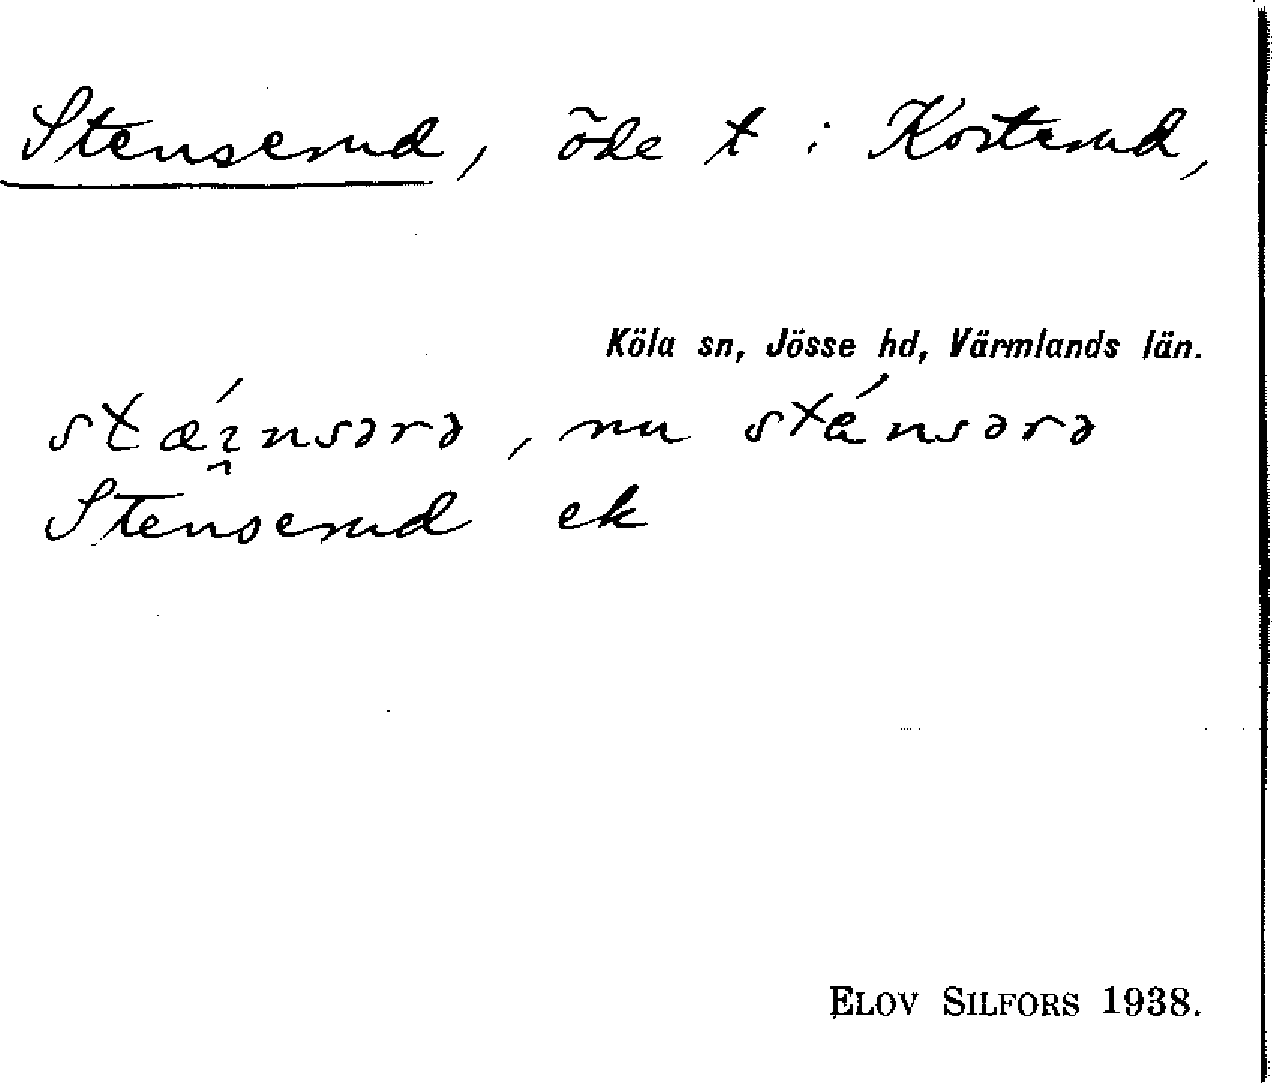 Stenserud, öde t i Kosterud,
Köla sn, Jösse hd, Värmlands län.
stǽı̯nsərə, nu sténsərə
Stenserud ek
ELOV SILFORS 1938.